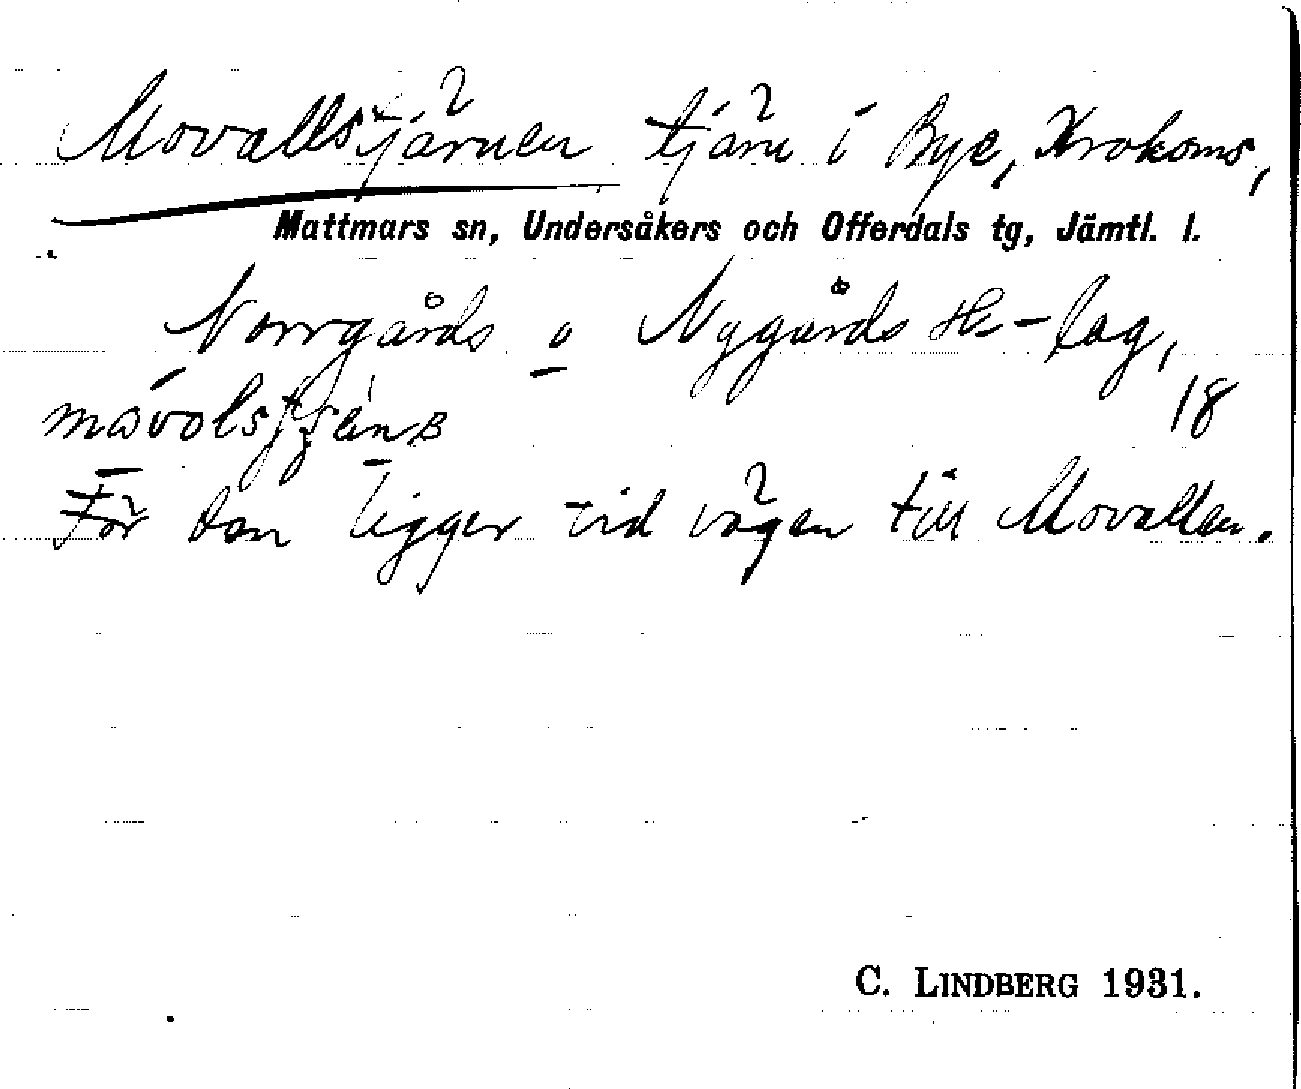 Movallstjärnen tjärn i Bye, Krokoms,
Mattmars sn, Undersåkers och Offerdals tg, Jämtl. l.
Norrgårds o Nygårds sk-lag,
18
För den ligger vid vägen till Movallen.
C. LINDBERG 1931.